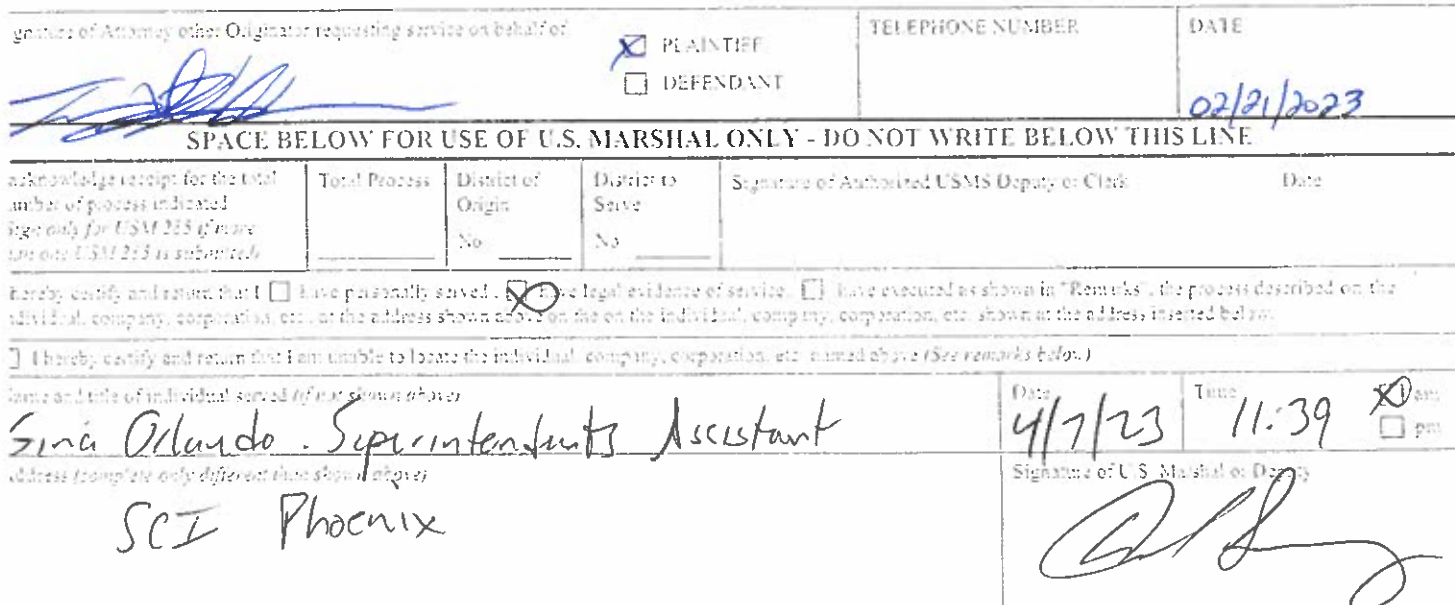 gnature of Attorney other Originator requesting service on behalf of:
PLAINTIFF
DEFENDANT
TELEPHONE NUMBER
DATE
02/21/2023
SPACE BELOW FOR USE OF U.S. MARSHAL ONLY - DO NOT WRITE BELOW THIS LINE
acknowledge receipt for the total
umber of process indicated
Sign only for USM 285 if more
han one USM 285 is submitted)
Total Process
District of
Origin
No
District to
Serve
No
Signature of Authorized USMS Deputy or Clerk
Date
hereby certify and return that I have personally served, have legal evidence of service, have executed as shown in "Remarks", the process described on the
dividual, company, corporation, etc., at the address shown above on the on the individual, company, corporation, etc. shown at the address inserted below.
I hereby certify and return that I am unable to locate the individual, company, corporation, etc. named above (See remarks below)
ame and title of individual served (if not shown above)
Gina Orlando. Superintendents Asscistant
Date
4/7/23
Time
11:39
am
pm
address (complete only different than shown above)
SCI Phoenix
Signature of U.S. Marshal or Deputy